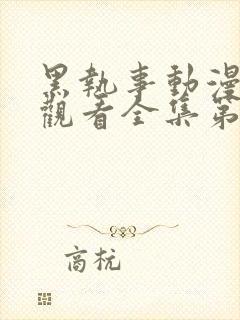 黑執事動漫
觀看全集第
商杬